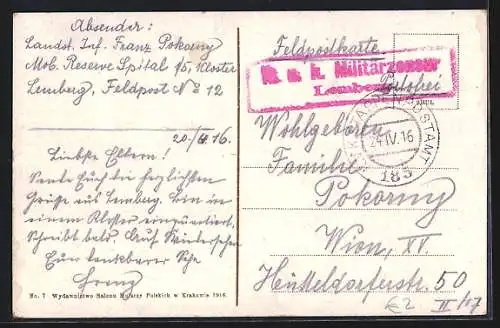 Absender:
Landst. Inf. Franz Pokorny
Mob. Reserve Spital 1/5, Kloster
Lemberg, Feldpost No 12
20./4. 16.
Liebste Eltern!
Sende Euch die herzlichsten
Grüsse aus Lemberg. Bin in
einem Kloster einquartiert,
Schreibt bald. Auf Wiedersehen
Euer dankbarer Sohn
Franz
No. 7 Wydawnictwo Salonu Malarzy Polskich w Krakowie 1916.
Feldpostkarte
Portofrei
K. u. k. Militärzensur
Lemberg
24 IV. 16
185
Wohlgeboren
Familie
Pokorny
Wien, XV.
Hütteldorferstr. 50
€2
II/17